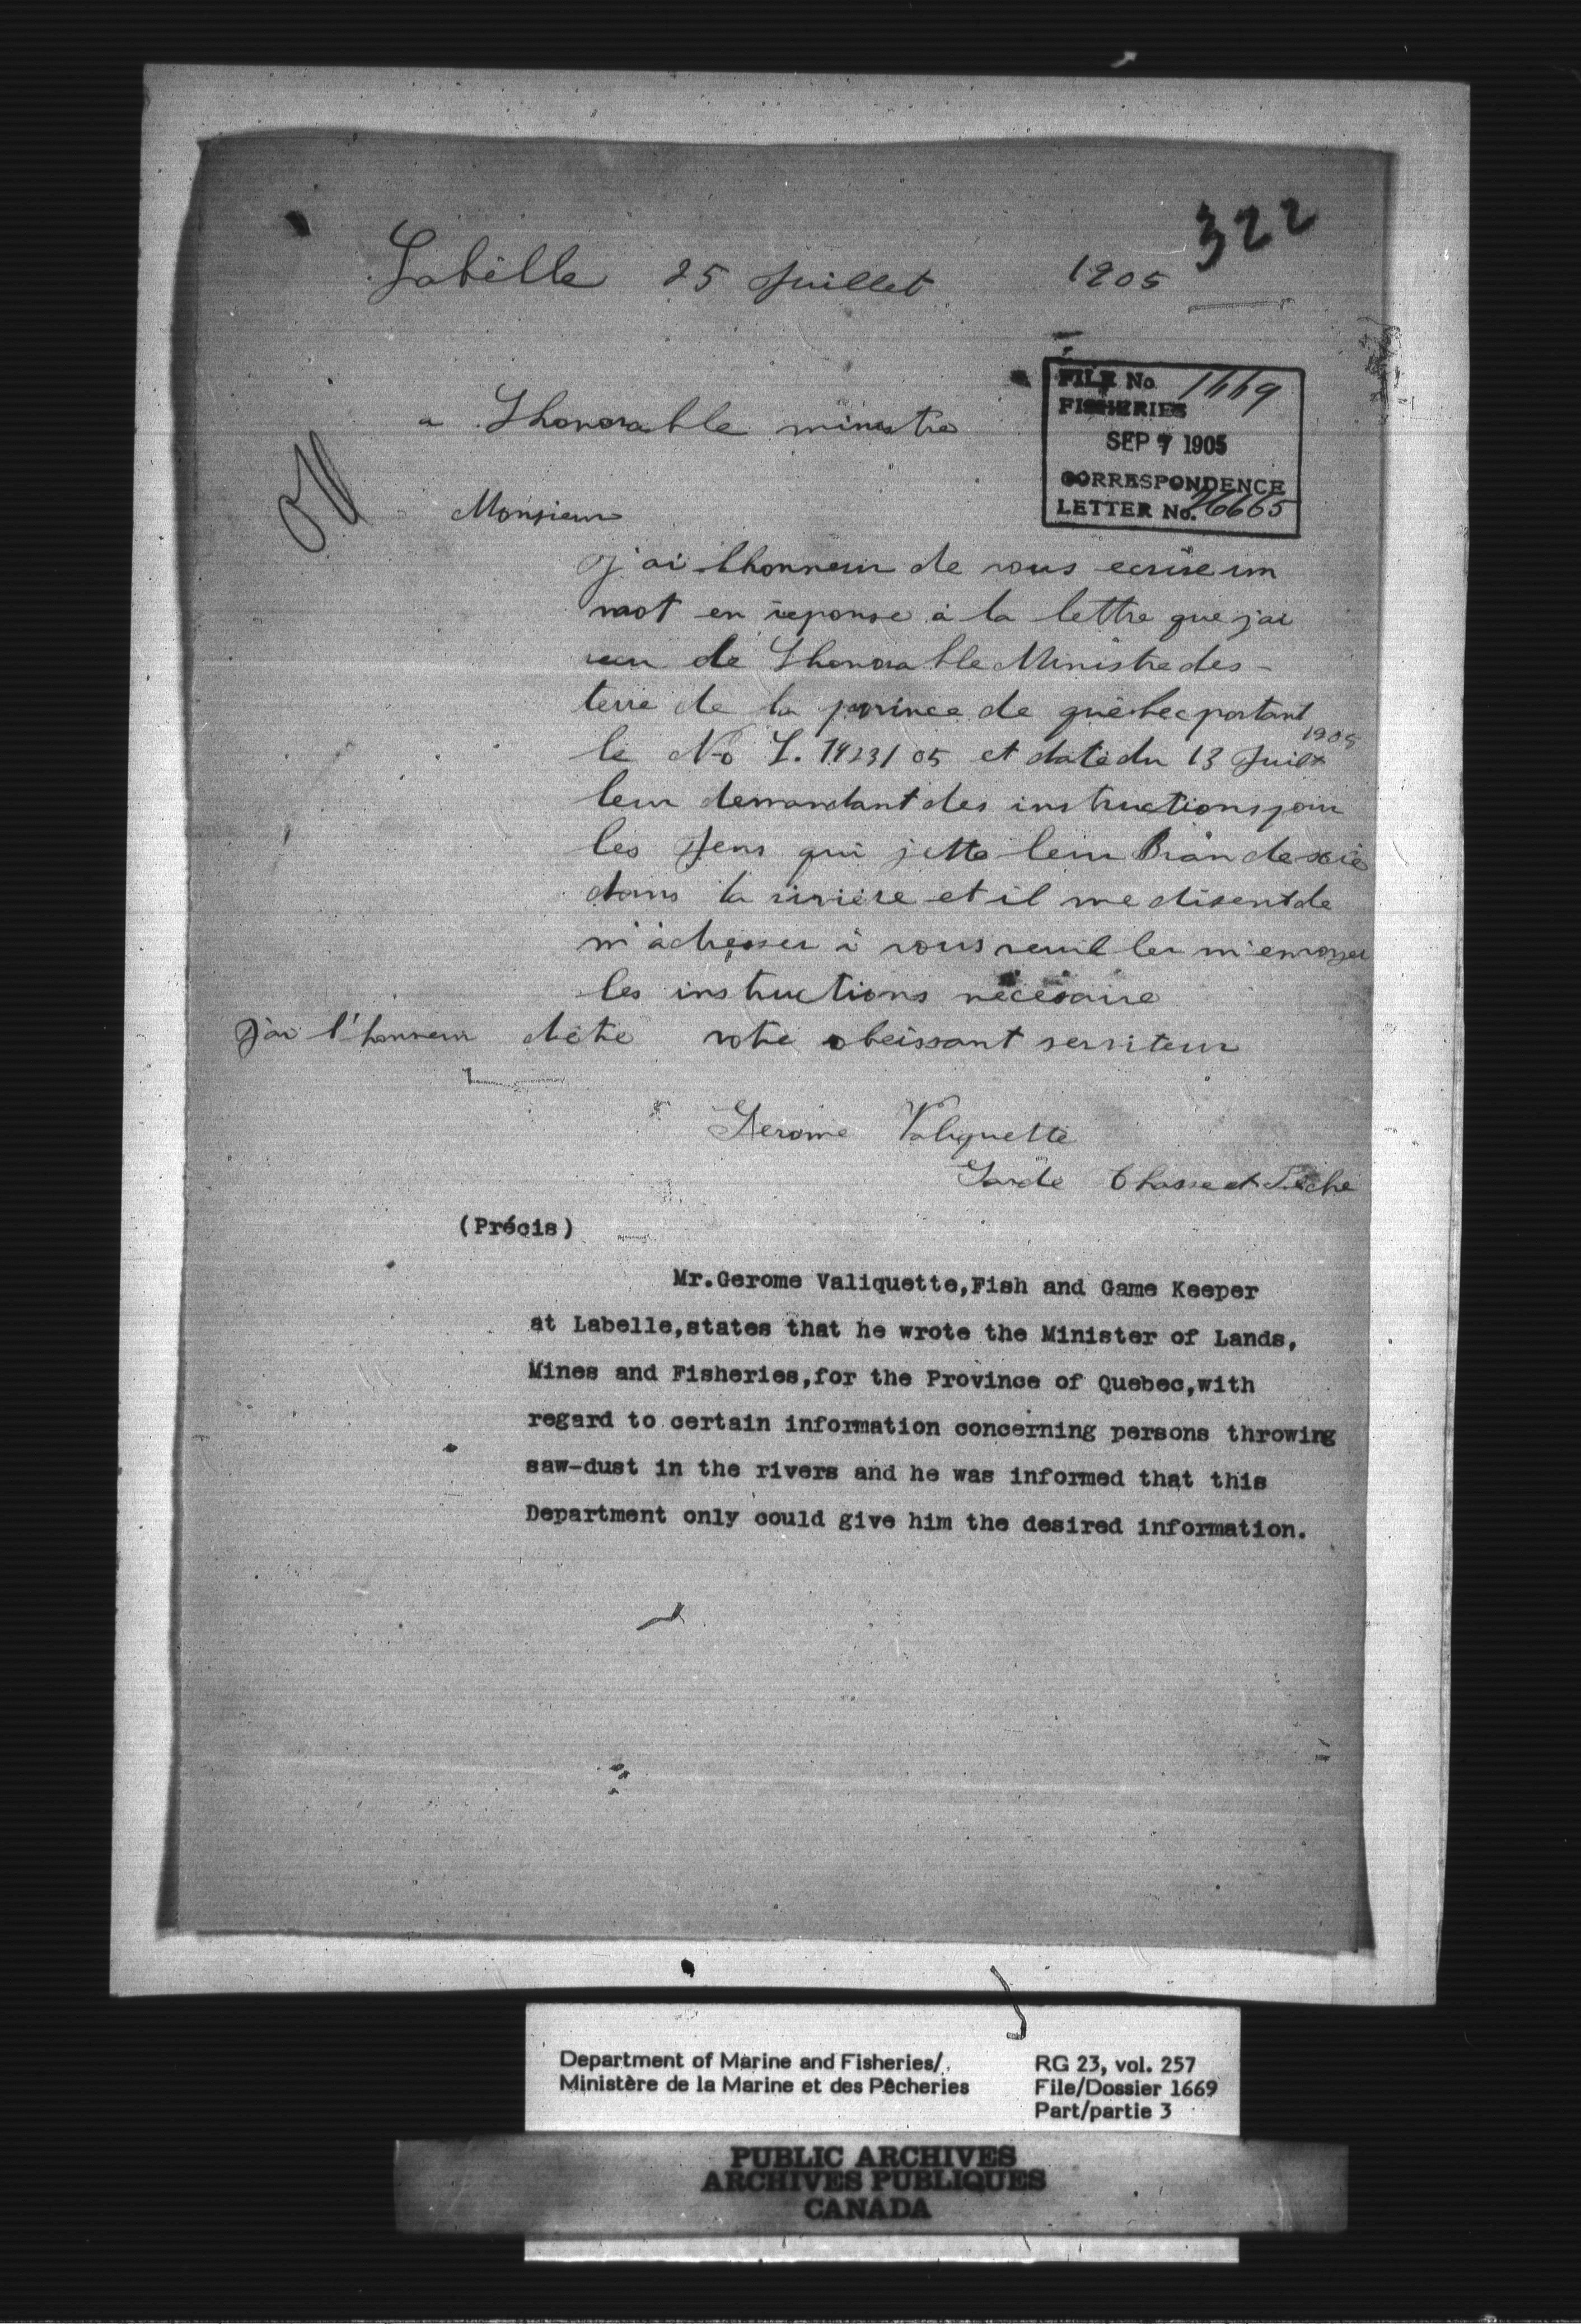 322
Labelle 25 Juillet 1905
FILE No 1669
FISHERIES
SEP 7 1905
CORRESPONDENCE
LETTER No. 26665
a Lhonorable ministre
Monsieur
j'ai lhonneur de vous ecrire un
mot en reponse à la lettre que jai
recu de Lhonorable Ministre des
terre de la province de québec portant
le No L. 19231 05 et date du 13 Juilt 1905
leur demandant des instructions pour
les Jens qui jette leur Bran de scie
dans la rivière et il me disent de
m'adresser à vous veuiller m'envoyer
les instructions nécésaire
j'ai l'honneur d'être votre obeissant serviteur
Gerome Valiquette
Garde Chasse et Pêche
(Précis)
Mr.Gerome Valiquette,Fish and Game Keeper
at Labelle,states that he wrote the Minister of Lands,
Mines and Fisheries,for the Province of Quebec,with
regard to certain information concerning persons throwing
saw-dust in the rivers and he was informed that this
Department only could give him the desired information.
Department of Marine and Fisheries/
Ministère de la Marine et des Pêcheries
RG 23, vol. 257
File/Dossier 1669
Part/partie 3
PUBLIC ARCHIVES
ARCHIVES PUBLIQUES
CANADA